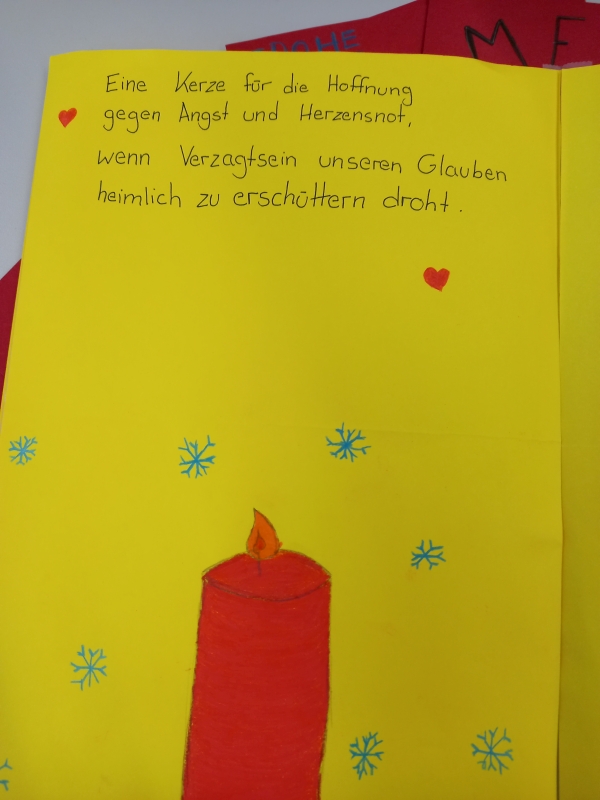 FROHE
M E
Eine Kerze für die Hoffnung
gegen Angst und Herzensnot,
wenn Verzagtsein unseren Glauben
heimlich zu erschüttern droht.